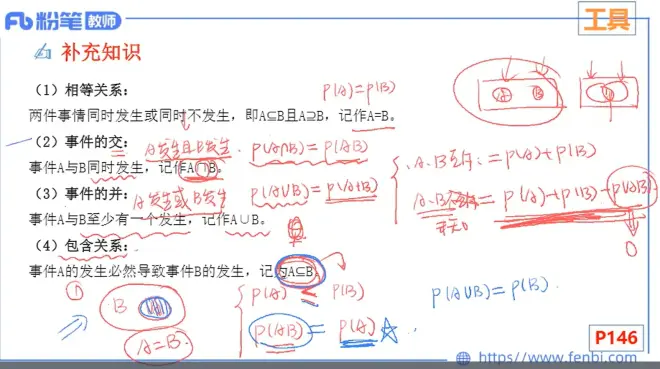 粉笔 教师
工具
补充知识
(1) 相等关系：
P(A)=P(B)
两件事情同时发生或同时不发生，即A⊆B且A⊇B，记作A=B。
(2) 事件的交：A发生且B发生. P(A∩B)=P(AB)
事件A与B同时发生，记作A∩B。
(3) 事件的并：A发生或B发生 P(A∪B)=P(A+B)
事件A与B至少有一个发生，记作A∪B。
A.B互斥：=P(A)+P(B)
=P(A)+P(B)-P(AB)
0
(4) 包含关系：
事件A的发生必然导致事件B的发生，记为A⊆B。
① B A
A=B.
P(A) ≤ P(B)
P(AB)=P(A)
P(A∪B)=P(B).
A B
P146
https://www.fenbi.com